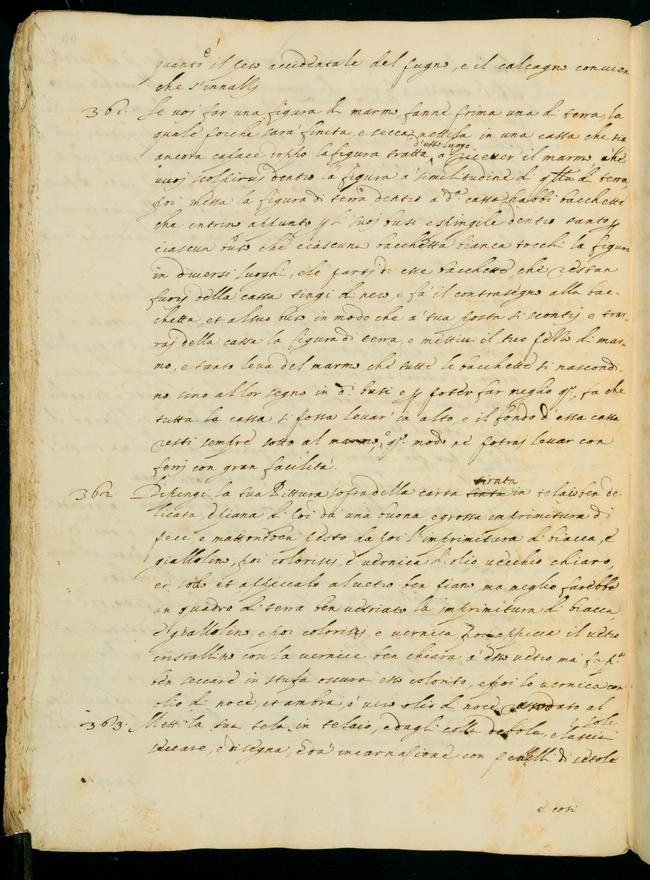 quanto è il peso accidentale del pugno, e il calcagno convien
che s'innalzi
361. Se voj far una figura di marmo fanne prima una di terra, la
quale poiche sarà finita, e secca, mettila in una cassa che sia
ancora capace doppo la figura tratta d'esso luogo a ricever il marmo che
vuoj scolpirvj dentro la figura a similitudine di q.lla di terra,
poi messa la figura di terra dentro a d.a cassa habbi bacchette
che entrino appunto p li suoj busi e spingile dentro tanto p
ciascun buso che ciascuna bacchetta bianca tocchi la figura
in diversi luoghi, e le partj di esse bacchette che restan
fuorj della cassa tingi di nero, e fà il contrasegno alla bac-
chetta, et al suo buso in modo che a tua posta si scontrj e trar-
raj della cassa la figura di terra e mettivi il tuo pezzo di mar-
mo, e tanto leva del marmo che tutte le bacchette si nascondi-
no sino al lor segno in d.i busi e p poter far meglio q.o, fa che
tutta la cassa si possa levar' in alto e il fondo d'essa cassa
resti sempre sotto al marmo, e q.o modo ne potraj levar con
ferrj con gran facilità.
362. Dipingi la tua Pittura sopra della carta tirata in telaio ben de-
licata, e piana di poi dà una buona e grossa imprimitura di
pece e mattone ben pesto da poi l'imprimitura di biacca, e
giallolino, poi coloriscj, e vernica d'olio vecchio chiaro,
e sodo et appiccalo al vetro ben piano, ma meglio farebbe
un quadro di terra ben vetriato la imprimitura di biacca
e giallolino, e poi coloriscj, e vernica poi appicca il vetro
cristallino con la vernice ben chiara a esso vetro ma fa p.a
ben seccare in stufa oscura esso colorito, e poi lo vernica con
olio di noce, et ambra, o vero olio di noce rassodato al
sole
363. Metti la tua tela in telaio, e dagli colla debole, e lascia
seccare, e disegna, e dà incarnazione con penelli di setole
e così